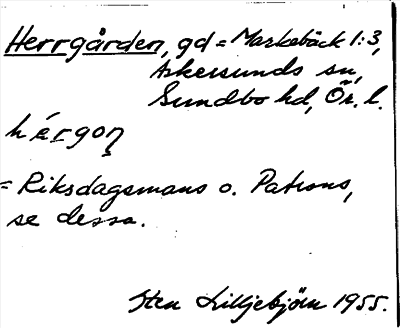 Herrgården, gd = Markebäck 1:3,
Askersunds sn,
Sundbo hd, Ör. l.
hérgon̥
= Riksdagsmans o. Patrons,
se dessa.
Sten Lilljebjörn 1955.